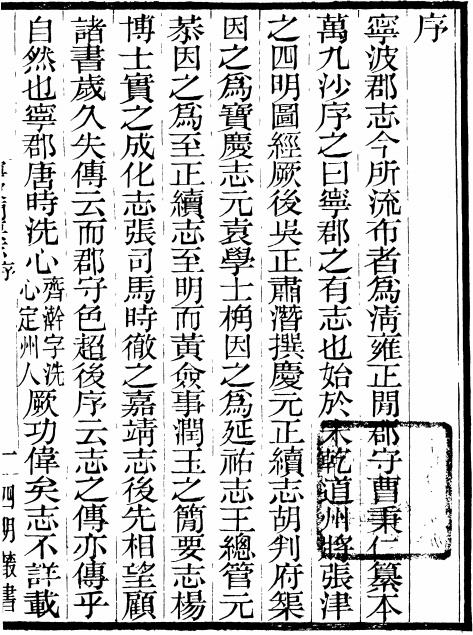 序
寧波郡志今所流布者爲淸雍正閒郡守曹秉仁纂本
萬九沙序之曰寧郡之有志也始於宋乾道州將張津
之四明圖經厥後吳正肅潛撰慶元正續志胡判府榘
因之爲寶慶志元袁學士桷因之爲延祐志王總管元
恭因之爲至正續志至明而黃僉事潤玉之簡要志楊
博士實之成化志張司馬時徹之嘉靖志後先相望顧
諸書歲久失傳云而郡守色超後序云志之傳亦傳乎
自然也寧郡唐時洗心齊澣字洗心定州人厥功偉矣志不詳載
序
一 四明叢書